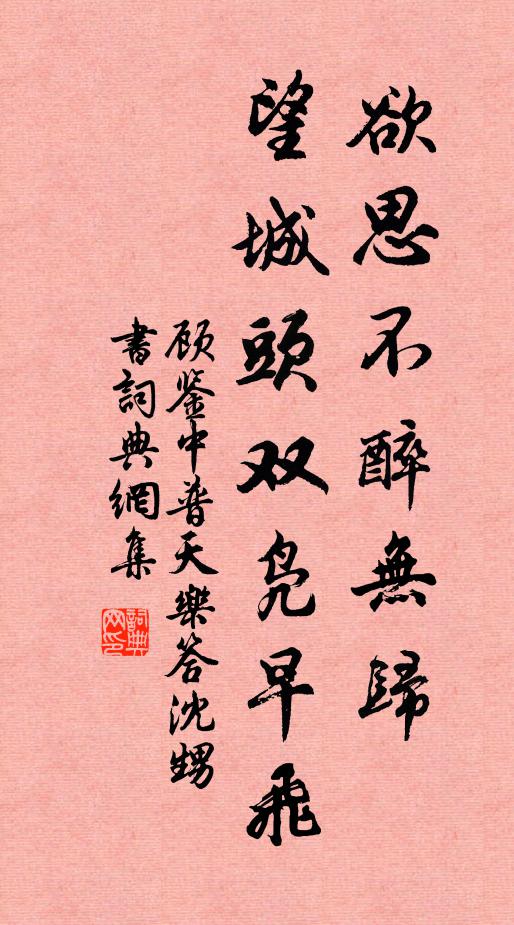 欲思不醉無歸
望城頭双凫早飛
顾鉴中普天樂答沈甥
書詞典網集
詞典网印